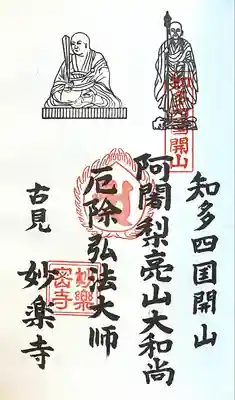 知多四国開山
阿闍梨亮山大和尚
厄除弘法大師
古見 妙楽寺
妙樂
密寺